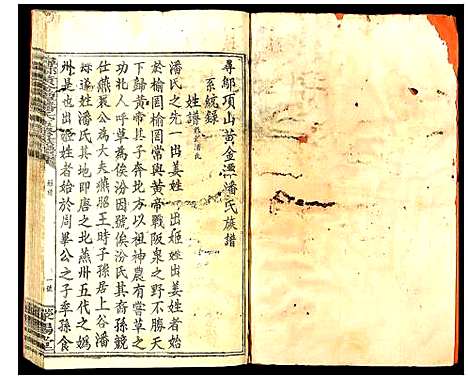 尋鄔項山黃金潭潘氏族譜
系統錄
姓譜
潘氏之先一出姜姓一出姬姓出姜姓者始
於榆罔榆罔常與黃帝戰阪泉之野不勝天
下歸黃帝其子奔北方以祖神農有嘗草之
功北人呼草為俟汾因號俟汾氏其裔孫競
仕燕哀公為大夫燕昭王時子孫居上谷潘
縣遂姓潘氏其地即唐之北燕州五代之媯
州是也出姬姓者始於周畢公之子季孫食